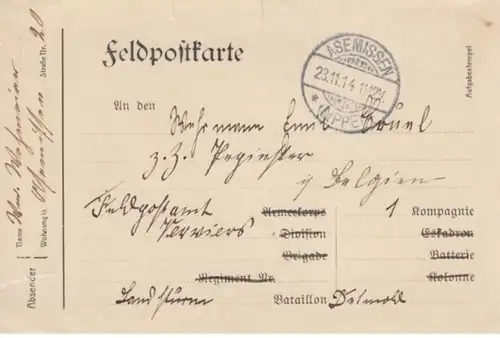 Feldpostkarte
ASEMISSEN
23.11.14
(LIPPE)
Aufgabestempel
An den
Wehrmann Emil
z. Z. Pepinster
Belgien
Feldpostamt
Verviers
Armeekorps
Division
Brigade
Regiment Nr.
1 Kompagnie
Eskadron
Batterie
Kolonne
Landsturm Bataillon Detmold
Absender
Name
Wohnung in Asemissen Straße Nr. 20